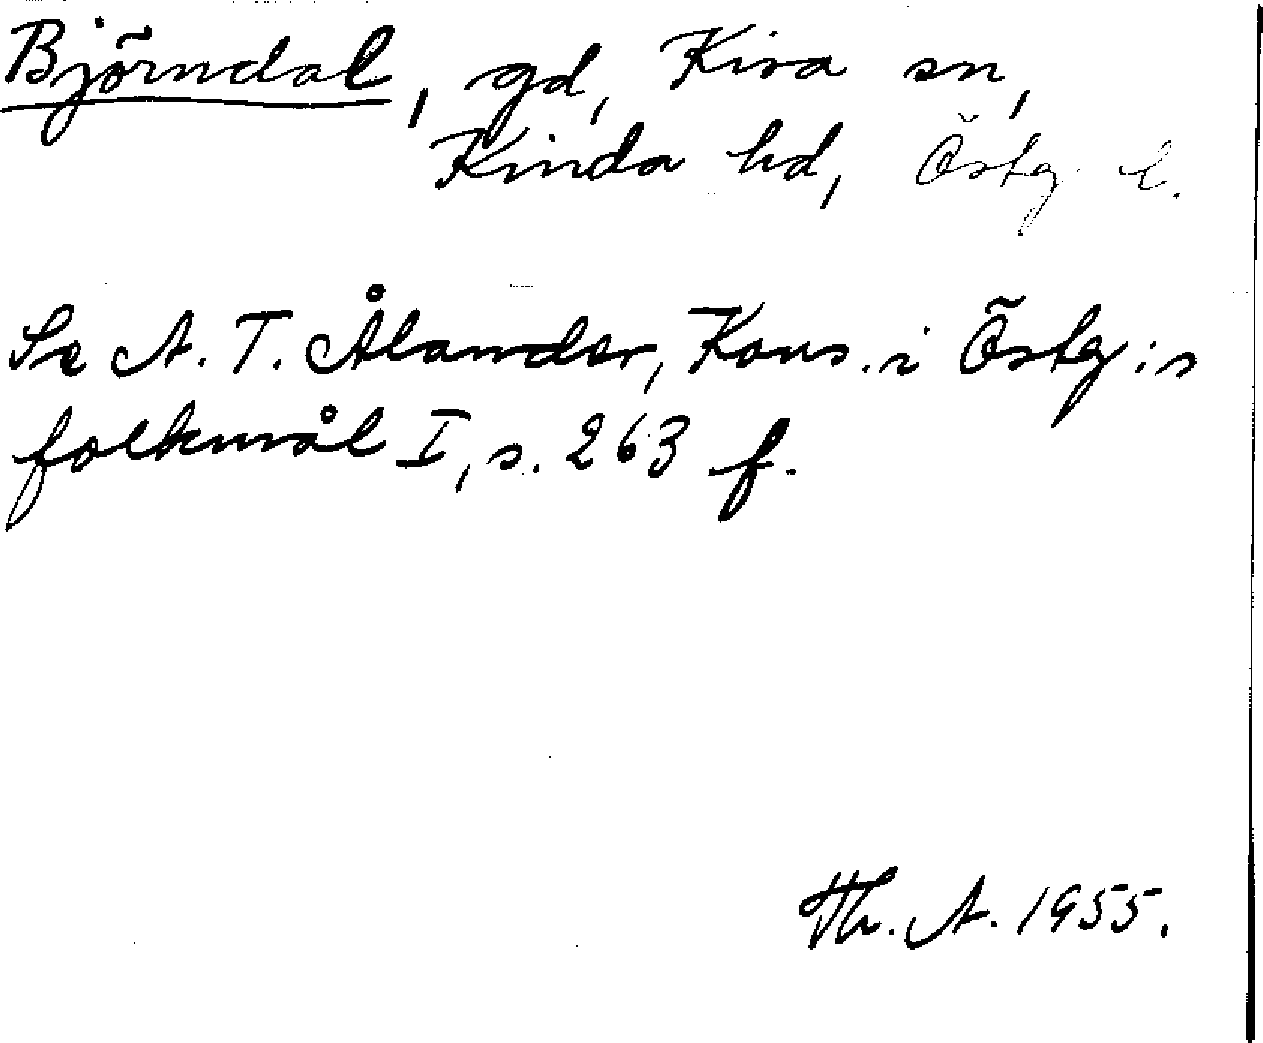 Björndal, gd, Kisa sn,
Kinda hd, Östg. l.
Se A. T. Ålander, Kons. i Östg:s
folkmål I, s. 263 f.
Th. A. 1955.